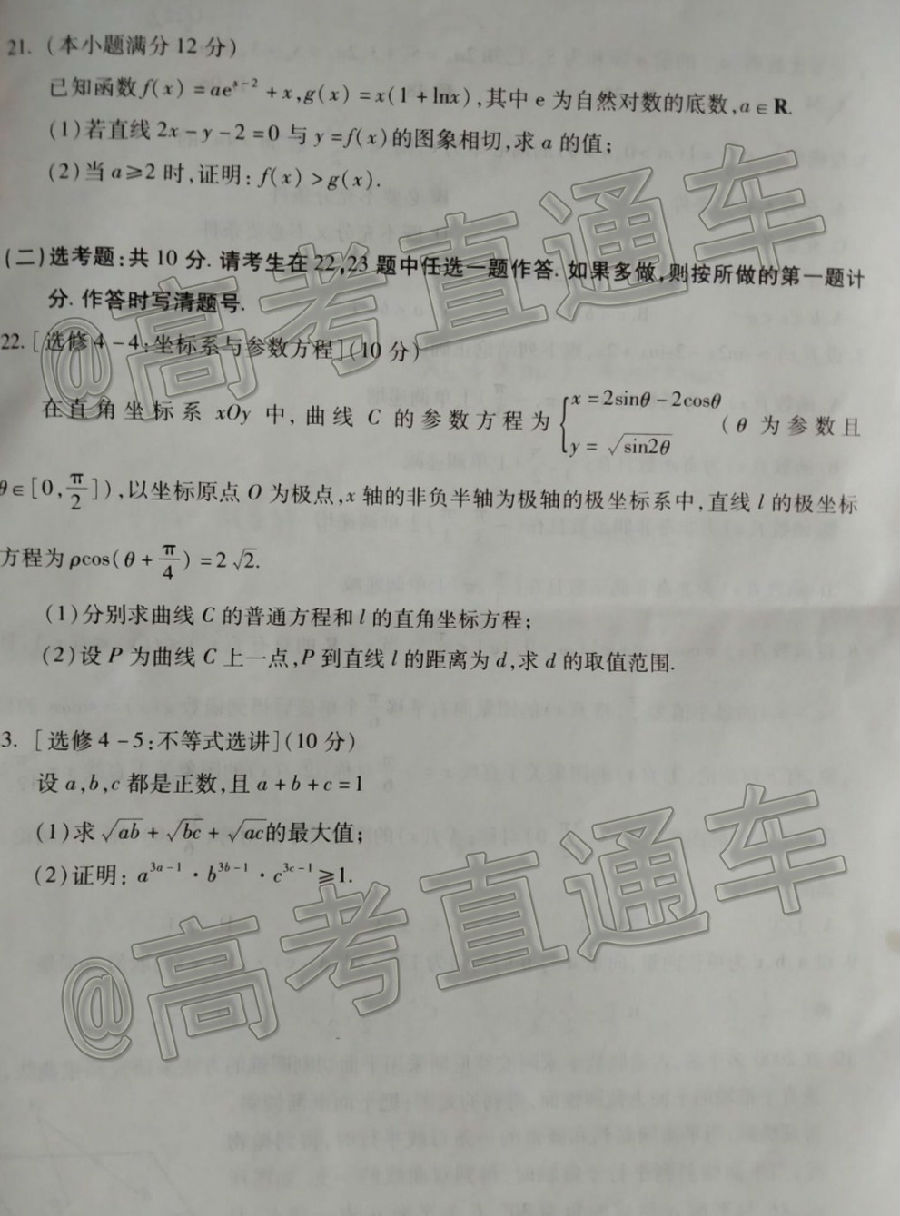 21. (本小题满分12分)
已知函数f(x)=ae^{x-2}+x,g(x)=x(1+lnx),其中e为自然对数的底数,a∈R.
(1)若直线2x-y-2=0与y=f(x)的图象相切,求a的值;
(2)当a≥2时,证明:f(x)>g(x).
(二)选考题:共10分.请考生在22,23题中任选一题作答.如果多做,则按所做的第一题计
分.作答时写清题号.
22. [选修4-4:坐标系与参数方程](10分)
在直角坐标系xOy中,曲线C的参数方程为{x=2sinθ-2cosθ y=√sin2θ (θ为参数且
θ∈[0,π/2]),以坐标原点O为极点,x轴的非负半轴为极轴的极坐标系中,直线l的极坐标
方程为ρcos(θ+π/4)=2√2.
(1)分别求曲线C的普通方程和l的直角坐标方程;
(2)设P为曲线C上一点,P到直线l的距离为d,求d的取值范围.
3. [选修4-5:不等式选讲](10分)
设a,b,c都是正数,且a+b+c=1
(1)求√ab+√bc+√ac的最大值;
(2)证明:a^{3a-1}·b^{3b-1}·c^{3c-1}≥1.
@高考直通车
@高考直通车